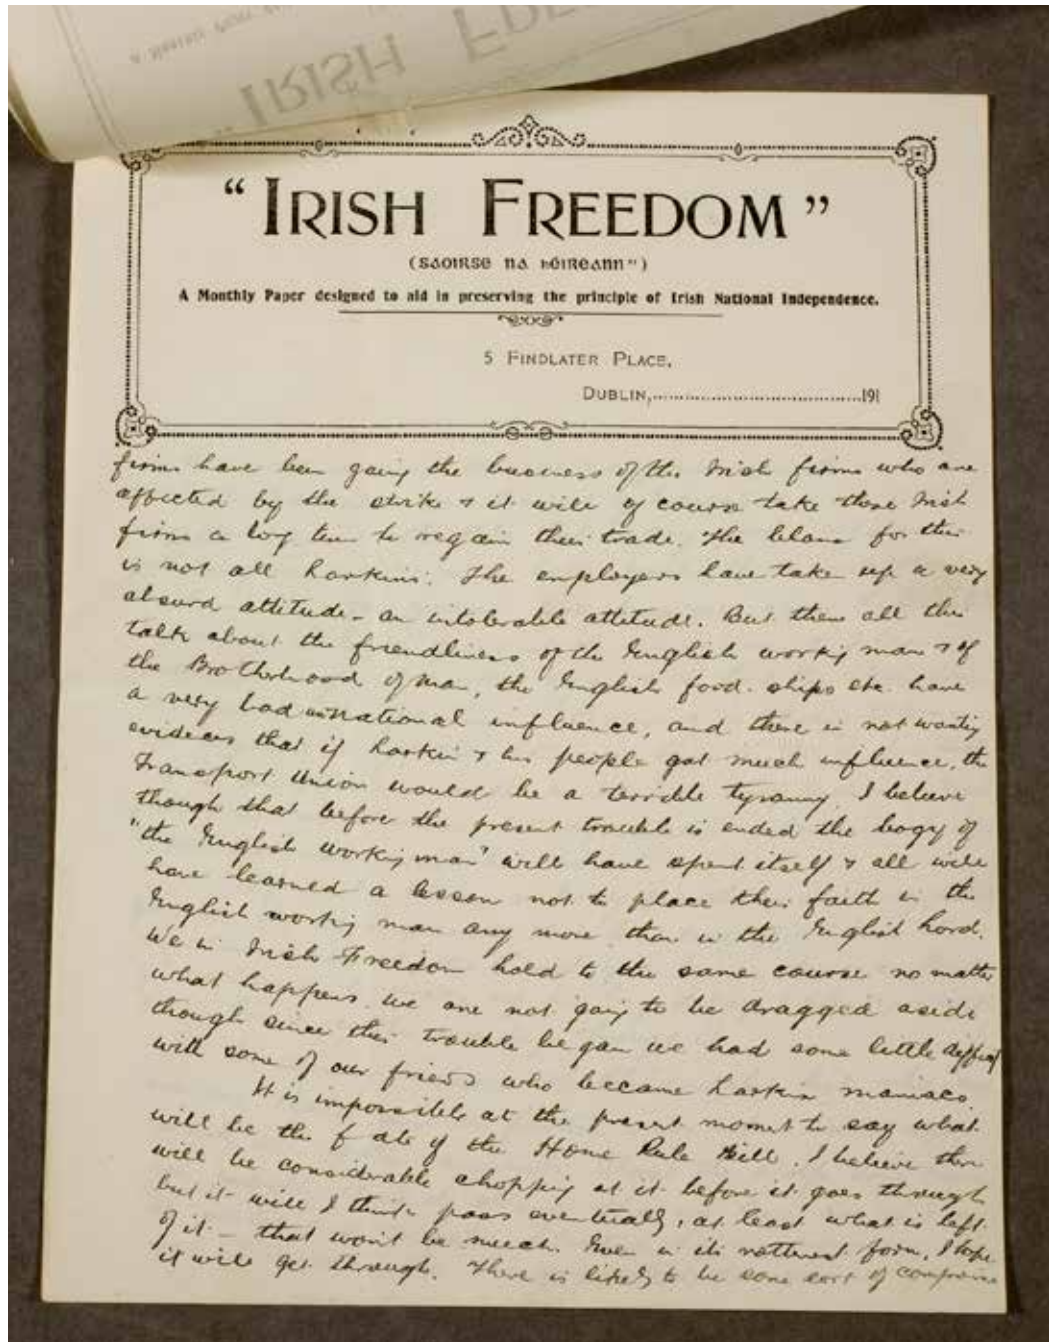 IRISH FRE
"IRISH FREEDOM"
(SAOIRSE NA hÉIREANN")
A Monthly Paper designed to aid in preserving the principle of Irish National Independence.
5 FINDLATER PLACE,
DUBLIN,..........................................191
firms have been going the business of the Irish firms who are
affected by the strike & it will of course take those Irish
firms a long time to regain their trade. The blame for this
is not all Larkins. The employers have take up a very
absurd attitude - an intolerable attitude. But then all this
talk about the friendliness of the English working man & of
the Brotherhood of Man, the English food-ships etc. have
a very bad national influence, and there is not wanting
evidences that if Larkin & his people got much influence, the
Transport Union would be a terrible tyranny. I believe
though that before the present trouble is ended the bogy of
"the English working man" will have spent itself & all will
have learned a lesson not to place their faith in the
English working man any more than in the English Lord.
We in Irish Freedom hold to the same course no matter
what happens we are not going to be dragged aside
though since this trouble began we had some little
with some of our friends who became Larkin maniacs.
It is impossible at the present moment to say what
will be the fate of the Home Rule Bill. I believe there
will be considerable chopping at it before it goes through
but it will I think pass eventually, at least what is left
of it - that won't be much. Even in its form, I hope
it will get through. There is likely to be some sort of compromise